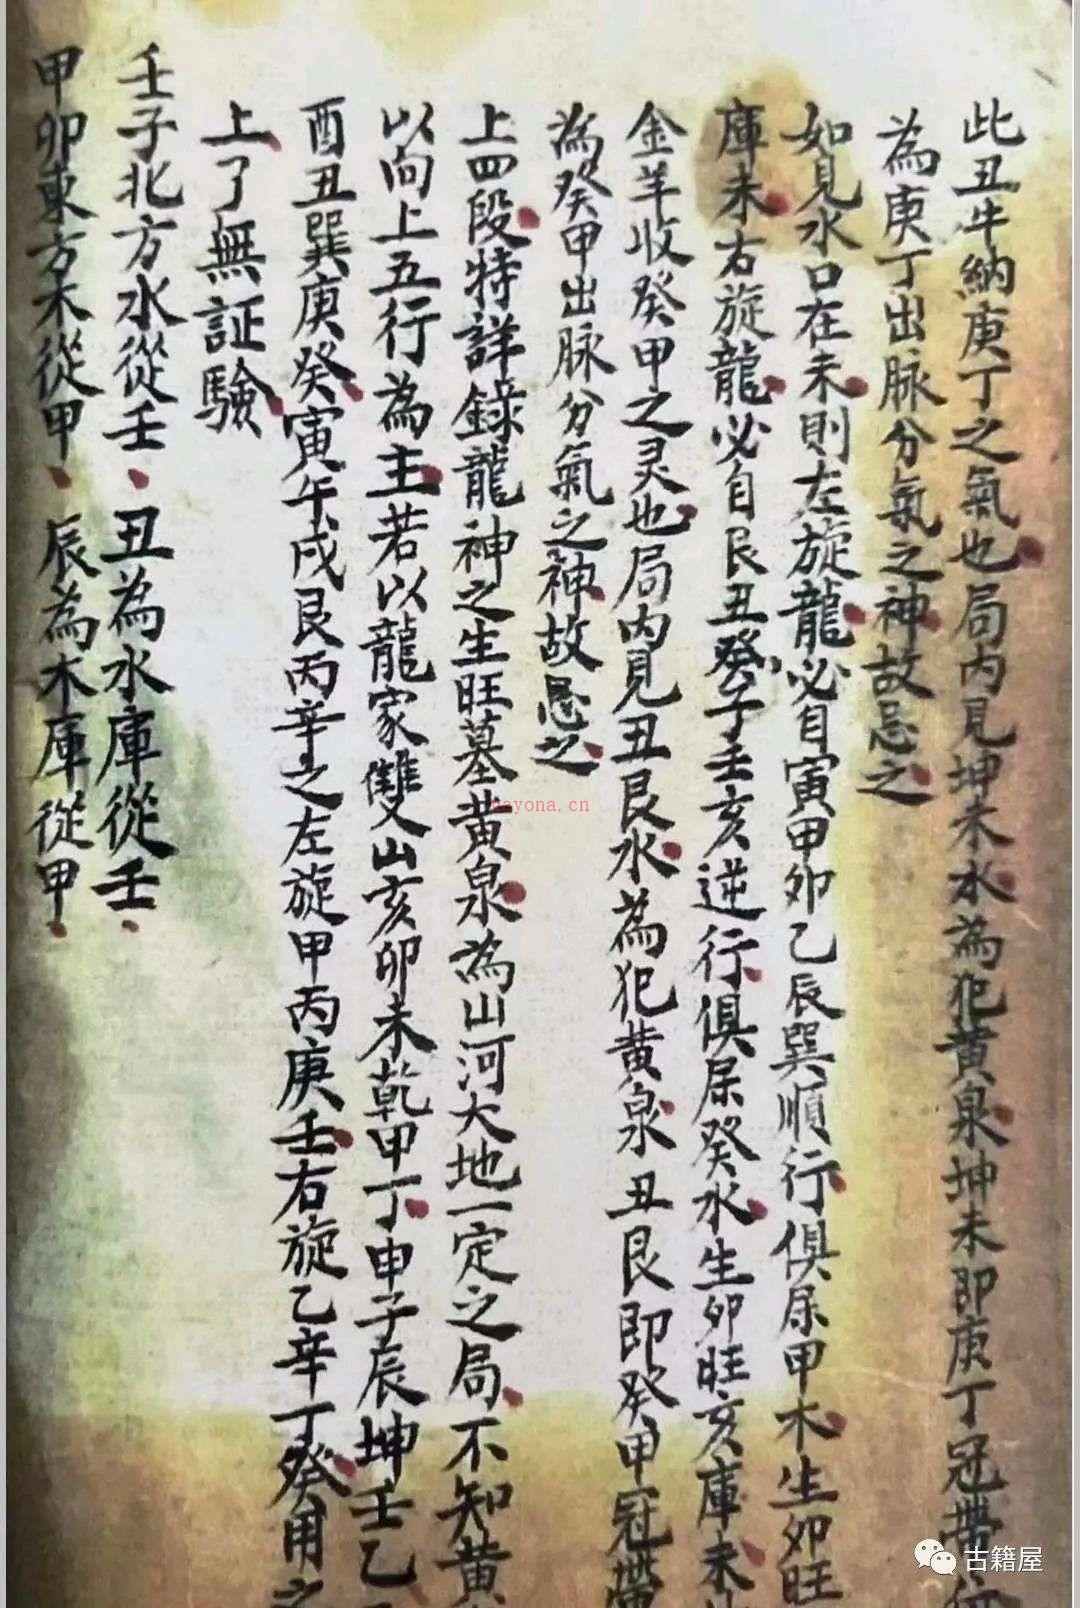 此丑牛納庚丁之氣也局内見坤未水為犯黄泉坤未即庚丁冠帶
為庚丁出脉分氣之神故忌之
如見水口在未則左旋龍必自寅甲卯乙辰巽順行俱屬甲木生卯旺
庫未右旋龍必自艮丑癸子壬亥逆行俱屬癸水生卯旺亥庫未
金羊收癸甲之灵也局内見丑艮水為犯黄泉丑艮即癸甲冠帶
為癸甲出脉分氣之神故忌之
上四段特詳錄龍神之生旺墓黄泉為山河大地一定之局不知黄
以向上五行為主若以龍家雙山亥卯未乾甲丁申子辰坤壬乙
酉丑巽庚癸寅午戌艮丙辛之左旋甲丙庚壬右旋乙辛丁癸用之
上了無証驗
壬子北方水從壬丑為水庫從壬
甲卯東方木從甲辰為木庫從甲
nayona.cn
古籍屋